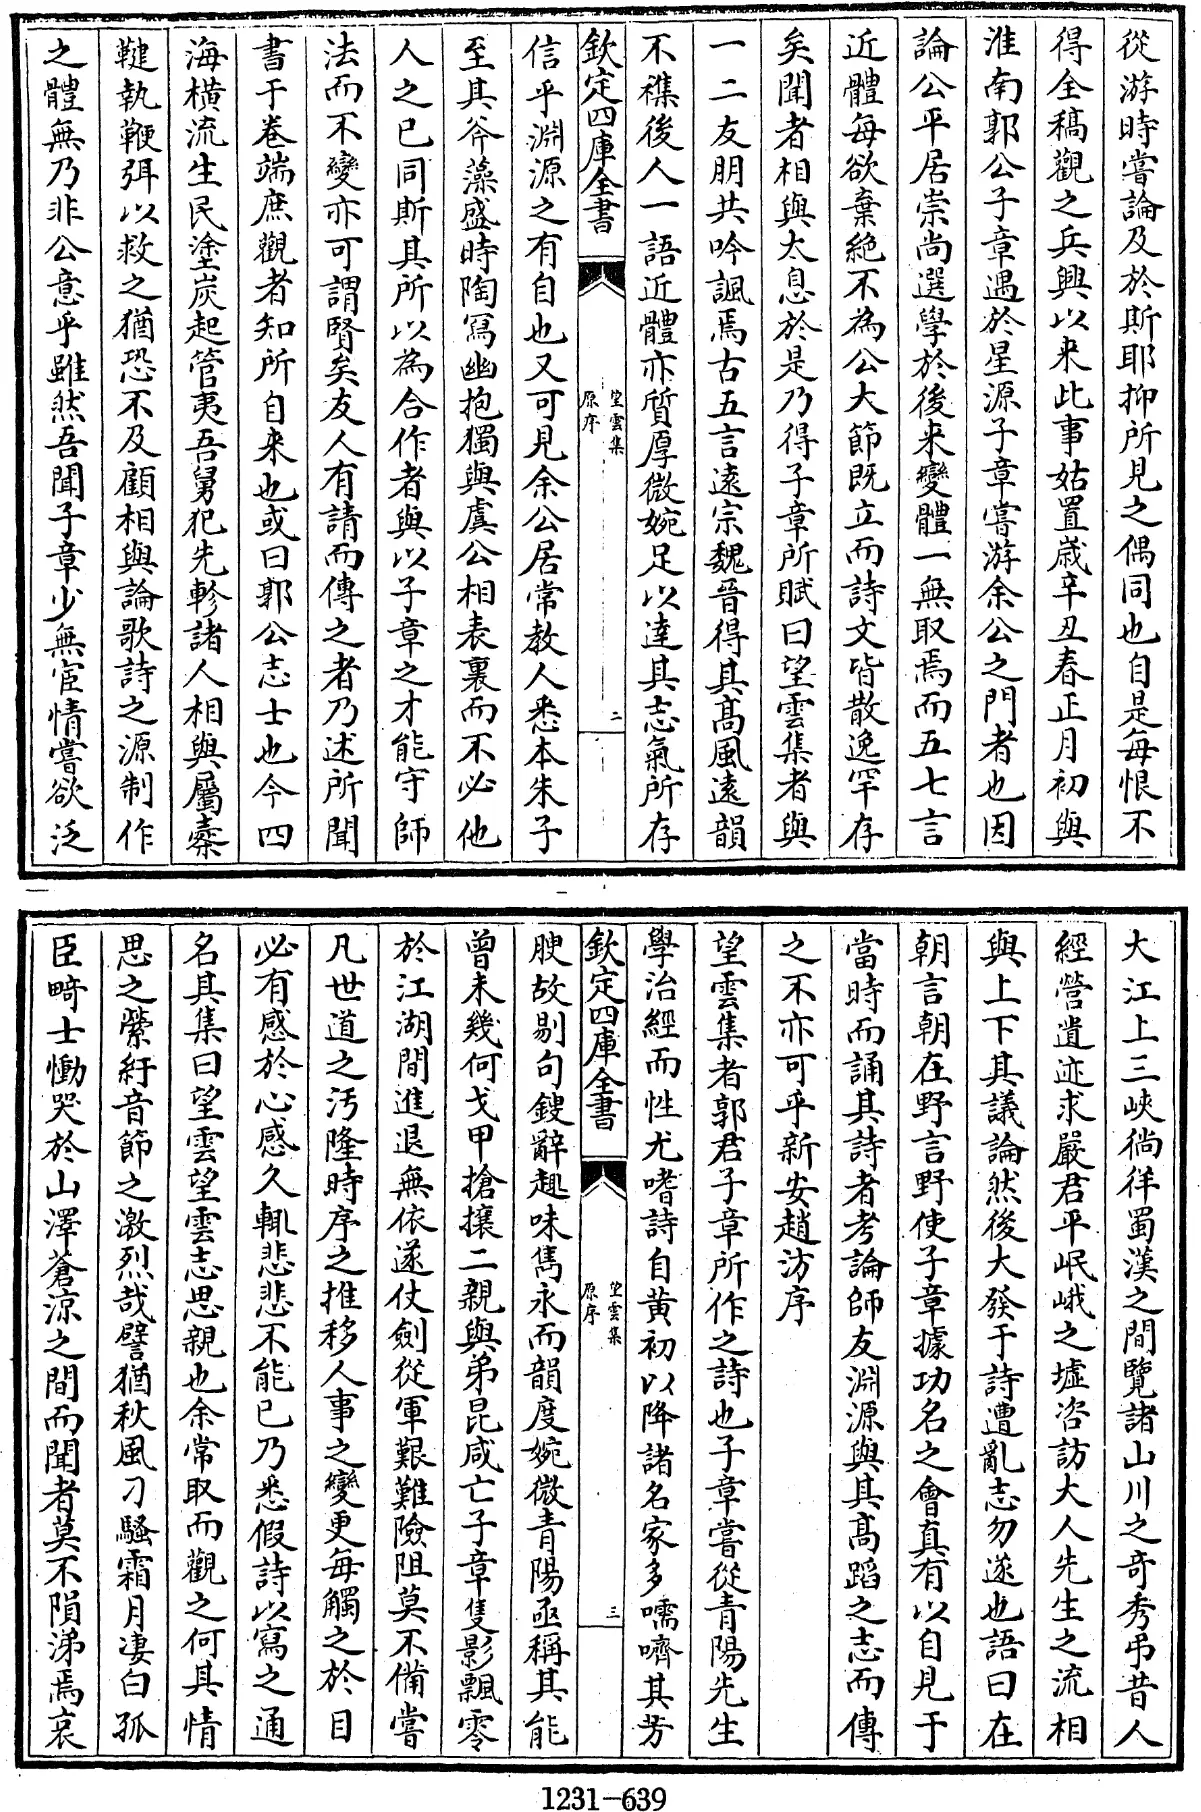 從游時嘗論及於斯耶抑所見之偶同也自是每恨不
得全稿觀之兵興以来此事姑置嵗辛丑春正月初與
淮南郭公子章遇於星源子章嘗游余公之門者也因
論公平居崇尚選學於後来變體一無取焉而五七言
近體每欲棄絶不為公大節既立而詩文皆散逸罕存
矣聞者相與太息於是乃得子章所賦曰望雲集者與
一二友朋共吟諷焉古五言逺宗魏晉得其髙風逺韻
不襍後人一語近體亦質厚微婉足以達其志氣所存
欽定四庫全書
望雲集
原序
二
信乎淵源之有自也又可見余公居常教人悉本朱子
至其斧藻盛時陶冩幽抱獨與虞公相表裏而不必他
人之已同斯其所以為合作者與以子章之才能守師
法而不變亦可謂賢矣友人有請而傳之者乃述所聞
書于卷端庶觀者知所自来也或曰郭公志士也今四
海橫流生民塗炭起管夷吾舅犯先軫諸人相與屬櫜
鞬執鞭弭以救之猶恐不及顧相與論歌詩之源制作
之體無乃非公意乎雖然吾聞子章少無宦情嘗欲泛
大江上三峽徜徉蜀漢之間覽諸山川之奇秀弔昔人
經營遺迹求嚴君平岷峨之墟咨訪大人先生之流相
與上下其議論然後大發于詩遭亂志勿遂也語曰在
朝言朝在野言野使子章據功名之會真有以自見于
當時而誦其詩者考論師友淵源與其髙蹈之志而傳
之不亦可乎新安趙汸序
望雲集者郭君子章所作之詩也子章嘗從青陽先生
學治經而性尤嗜詩自黄初以降諸名家多嚅嚌其芳
欽定四庫全書
望雲集
原序
三
腴故剔句鎪辭趣味雋永而韻度婉微青陽亟稱其能
曾未幾何戈甲搶攘二親與弟昆咸亡子章隻影飄零
於江湖間進退無依遂仗劍從軍艱難險阻莫不備嘗
凡世道之汚隆時序之推移人事之變更每觸之於目
必有感於心感久輒悲悲不能已乃悉假詩以寫之通
名其集曰望雲望雲志思親也余常取而觀之何其情
思之縈紆音節之激烈哉譬猶秋風刁騷霜月淒白孤
臣畸士慟哭於山澤蒼凉之間而聞者莫不隕涕焉哀
1231-639